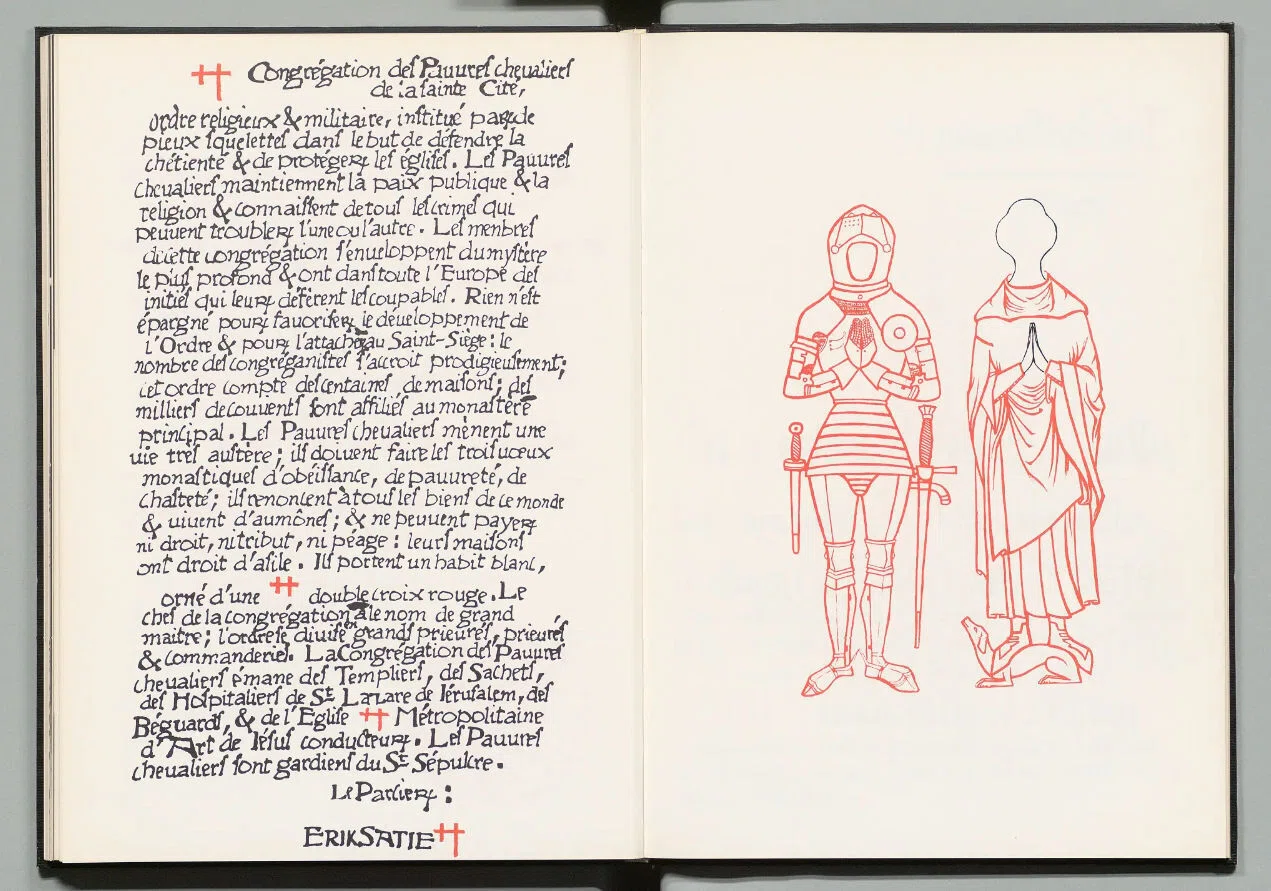 Congrégation des Pauures cheualiers
de la sainte Cité,
ordre religieux & militaire, institué par de
pieux squelettes dans le but de défendre la
chétienté & de protéger les églises. Les Pauures
cheualiers maintiennent la paix publique & la
religion & connaissent de tous les crimes qui
peuuent troubler l'une ou l'autre. Les menbres
de cette congrégation s'enueloppent du mystère
le plus profond & ont dans toute l'Europe des
initiés qui leur déférent les coupables. Rien n'est
épargné pour fauoriser le déueloppement de
l'Ordre & pour l'attacher au Saint-Siège : le
nombre des congréganistes s'accroit prodigieusement;
cet ordre compte des centaines de maisons; des
milliers de couuents sont affiliés au monastère
principal. Les Pauures cheualiers mènent une
uie très austère; ils doiuent faire les trois uœux
monastiques d'obéissance, de pauureté, de
chasteté; ils renoncent à tous les biens de ce monde
& uiuent d'aumônes; & ne peuuent payer
ni droit, ni tribut, ni péage : leurs maisons
ont droit d'asile. Ils portent un habit blanc,
orné d'une double croix rouge. Le
chef de la congrégation a le nom de grand
maitre; l'ordre se diuise en grands prieurés, prieurés
& commanderies. La Congrégation des Pauures
cheualiers émane des Templiers, des Sachets,
des Hospitaliers de St Lazare de Iérusalem, des
Béguards, & de l'Eglise Métropolitaine
d'Art de Iésus conducteur. Les Pauures
cheualiers sont gardiens du St Sépulcre.
Le Parcier :
ERIK SATIE